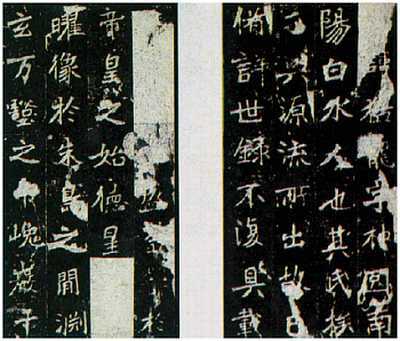 猛龍字神冏南
陽白水人也其氏族
興源流所出故已
備詳世錄不復具載
盛
於
帝皇之始德星
曜像於朱鳥之間淵
玄万壑之中